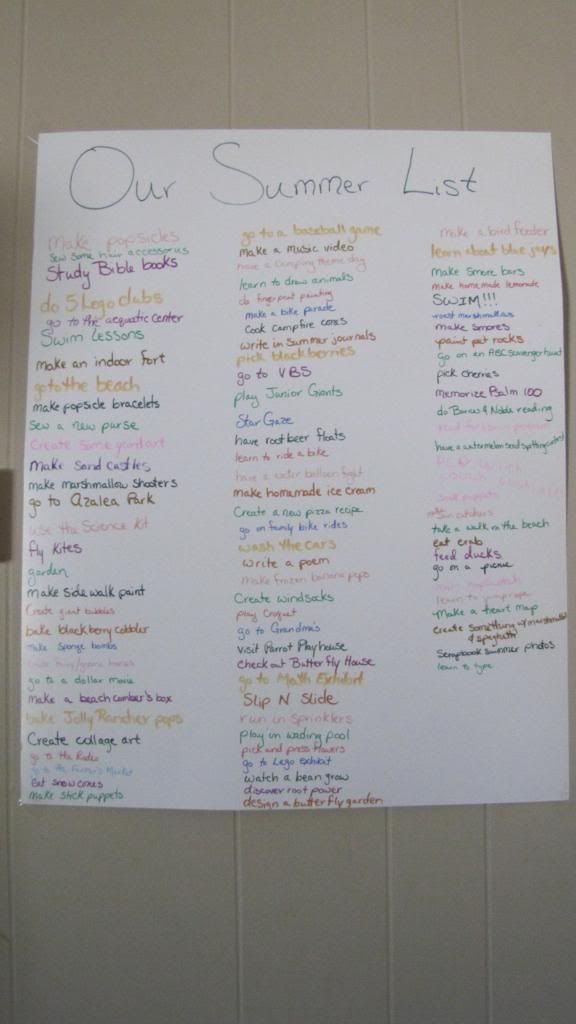 Our Summer List
Make popsicles
Sew some hair accessories
Study Bible books
do 5 Lego clubs
go to the aequatic center
Swim Lessons
make an indoor fort
go to the beach
make popside bracelets
Sew a new purse
Create some yard art
Make Sand Castles
make marshmallow shooters
go to Azalea Park
use the Science Kit
fly kites
garden
make side walk paint
Create giant bubbles
bake blackberry cobbler
Make Sponge bombs
go to a dollar movie
make a beach comber's box
bake Jolly Rancher pops
Create collage art
go to the Rodeo
go to the Farmer's Market
Eat snow cones
make stick puppets
go to a baseball game
make a music video
have a camping theme day
learn to draw animals
do finger paint painting
make a bike parade
Cook campfire cones
write in summer journals
pick blackberries
go to VBS
play Junior Giants
Star Gaze
have root beer floats
learn to ride a bike
have a water balloon fight
make homemade ice cream
Create a new pizza recipe
go on family bike rides
wash the cars
write a poem
Make frozen banana pops
Create windsocks
play Croquet
go to Grandma's
visit Parrot Playhouse
check out Butterfly House
go to Math Exhibit
Slip N Slide
run in sprinklers
play in wading pool
pick and press flowers
go to Lego exhibit
watch a bean grow
discover root power
design a butterfly garden
make a bird feeder
learn about blue jays
make Smore bars
make homemade lemonade
SWIM!!!
roast marshmallows
make Smores
paint pet rocks
Go on an ABC scavenger hunt
pick cherries
memorize Psalm 100
do Barnes & Noble reading
read for library program
have a watermelon seed spitting contest
sock puppets
sun catchers
take a walk on the beach
eat crab
feed ducks
go on a picnic
learn to jump rope
make a heart map
create something w/ marshmallows
& spaghetti
Scrapbook summer photos
learn to type